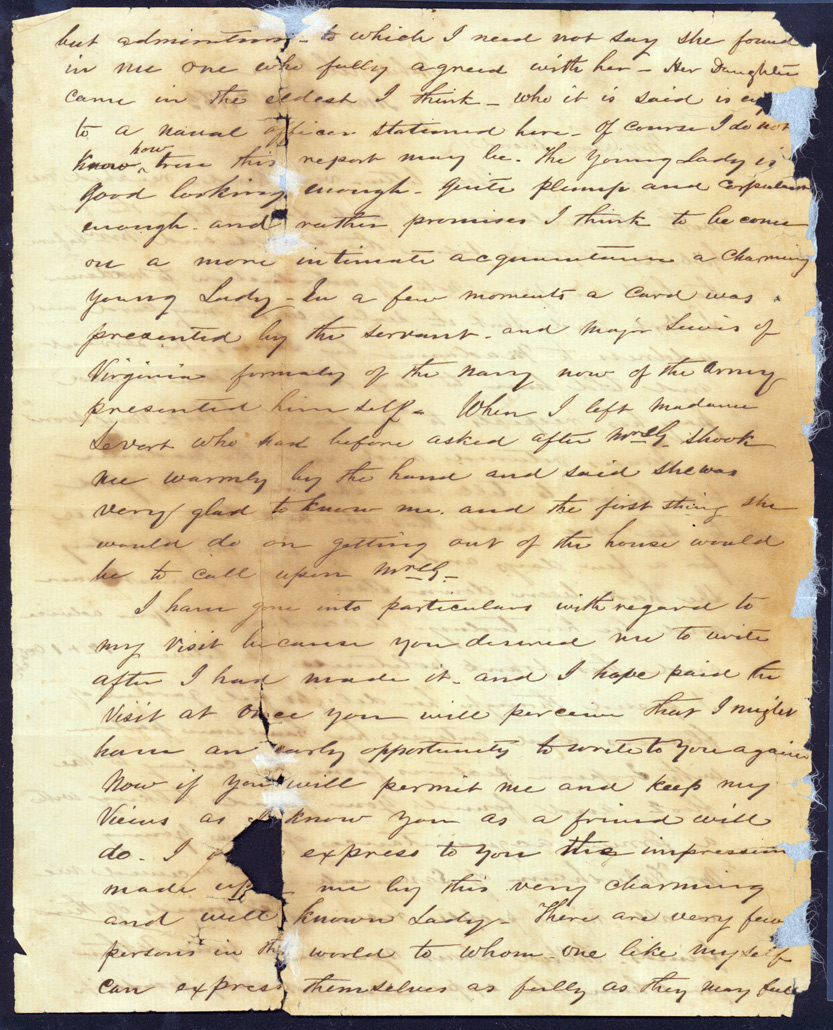 but admiration – to which I need not say she found
in me one who fully agreed with her – Her Daughter
came in the eldest I think – who it is said is
to a naval officer stationed here – of course I do not
know how true this report may be. The Young Lady is
good looking enough – quite plump and corpulent
enough. and rather promises I think to become
on a more intimate acquaintance a charming
young Lady – In a few moments a card was
presented by the servant – and Major Lewis of
Virginia formaly of the navy now of the Army
presented himself. When I left Madame
Levert who had before asked after Mrs G. shook
me warmly by the hand and said she was
very glad to know me. and the first thing she
would do on getting out of the house would
be to call upon Mrs G –
I have gone into particulars with regard to
my visit because you desired me to write
after I had made it – and I have paid the
visit at once you will perceive that I might
have an early opportunity to write to you again
Now if you will permit me and keep my
Views as I know you as a friend will
do. I express to you the impression
made upon me by this very charming
and well known Lady – There are very few
persons in the world to whom one like myself
can express themselves as fully as they may feel